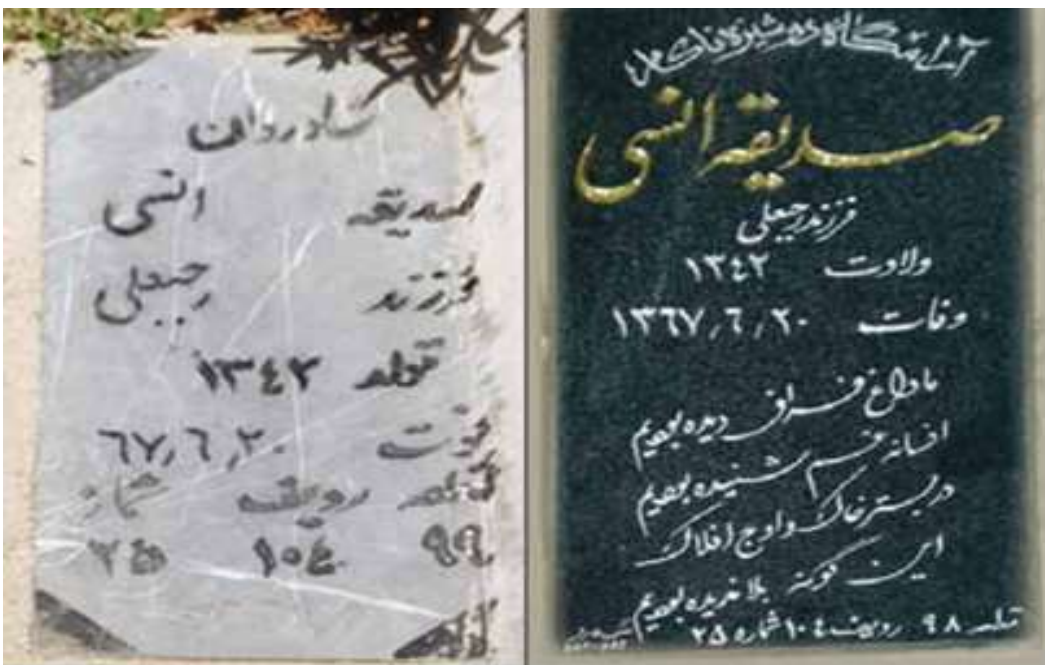 شادروان
صدیقه انسی
فرزند رجبعلی
تولد ۱۳۴۲
فوت ۶۷٫۶٫۲۰
قطعه ردیف شماره
۹۹ ۱۰۴ ۲۵
آرامگاه دوشیزه ناکام
صدیقه انسی
فرزند رجبعلی
ولادت ۱۳۴۲
وفات ۱۳۶۷٫۶٫۲۰
ما داغ فراق دیده بودیم
افسانه غم شنیده بودیم
در بستر خاک و اوج افلاک
این گونه بلا ندیده بودیم
قطعه ۹۸ ردیف ۱۰۴ شماره ۲۵